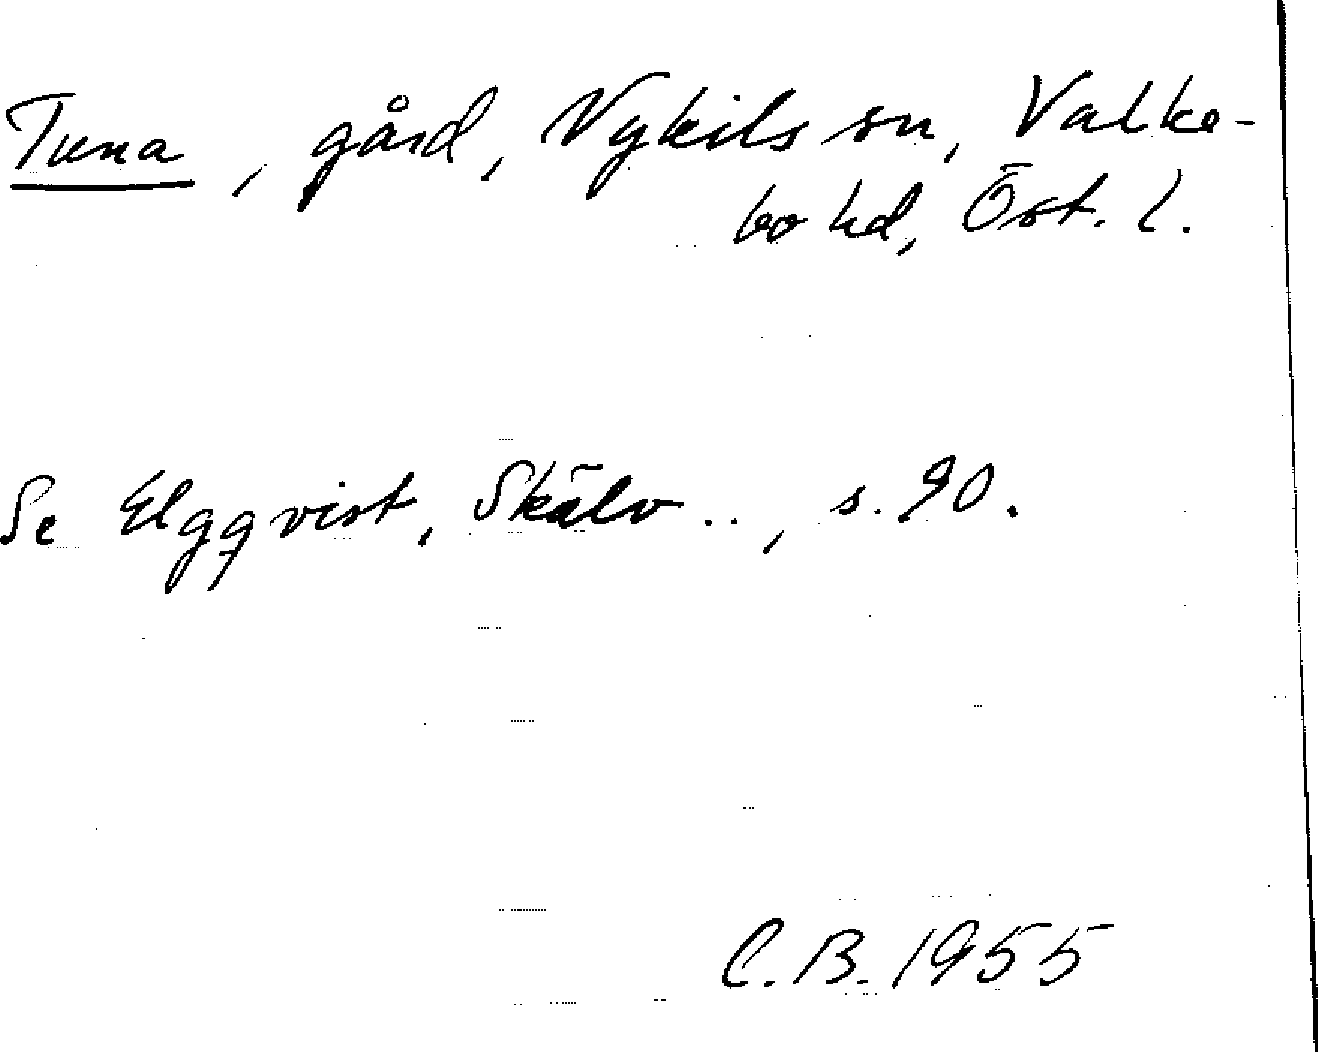 Tuna, gård, Vykils sn, Valke-
bo hd, Öst. l.
Se Elgqvist, Skälv .., s. 90.
C.B. 1955